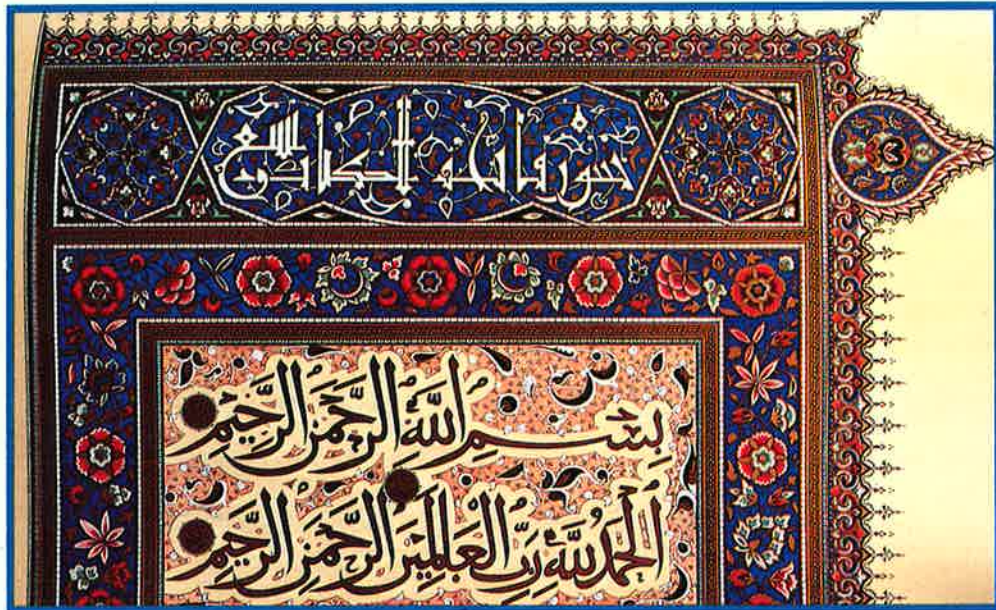 سورة فاتحة الكتاب سبع
بِسْمِ اللَّهِ الرَّحْمَٰنِ الرَّحِيمِ
الْحَمْدُ لِلَّهِ رَبِّ الْعَالَمِينَ الرَّحْمَٰنِ الرَّحِيمِ